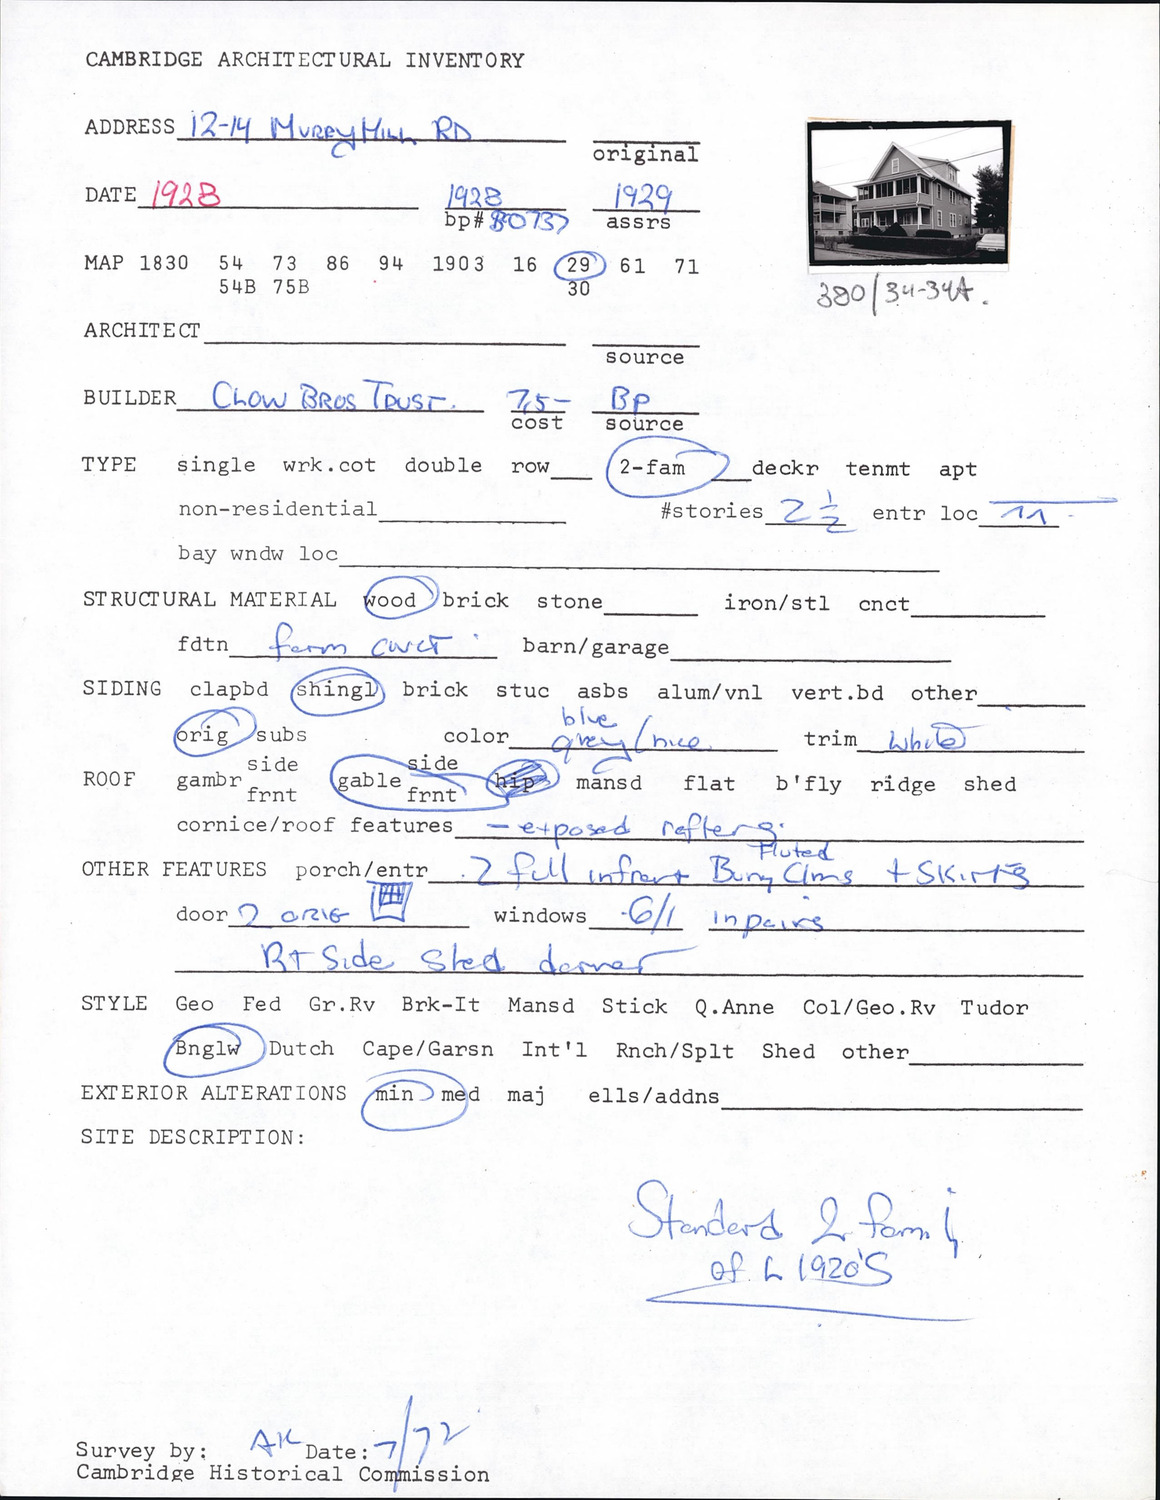 CAMBRIDGE ARCHITECTURAL INVENTORY
ADDRESS 12-14 Murray Hill RD
original
DATE 1928 1928 1929
bp# 80737 assrs
MAP 1830 54 73 86 94 1903 16 29 61 71
54B 75B 30
380/34-34A.
ARCHITECT
source
BUILDER Chow Bros Trust. 7,5- BP
cost source
TYPE single wrk.cot double row 2-fam deckr tenmt apt
non-residential #stories 2 1/2 entr loc
bay wndw loc
STRUCTURAL MATERIAL wood brick stone iron/stl cnct
fdtn barn/garage
SIDING clapbd shingl brick stuc asbs alum/vnl vert.bd other
blue
orig subs color grey/nice trim white
side side
ROOF gambr gable hip mansd flat b'fly ridge shed
frnt frnt
cornice/roof features - exposed rafters.
Fluted
OTHER FEATURES porch/entr 2 full infront Bung Clms + Skirts
door 2 orig windows 6/1 in pairs
Rt Side Shed dormer
STYLE Geo Fed Gr.Rv Brk-It Mansd Stick Q.Anne Col/Geo.Rv Tudor
Bnglw Dutch Cape/Garsn Int'l Rnch/Splt Shed other
EXTERIOR ALTERATIONS min med maj ells/addns
SITE DESCRIPTION:
Standard 2 family
of L 1920'S
Survey by: AK Date: 7/72
Cambridge Historical Commission